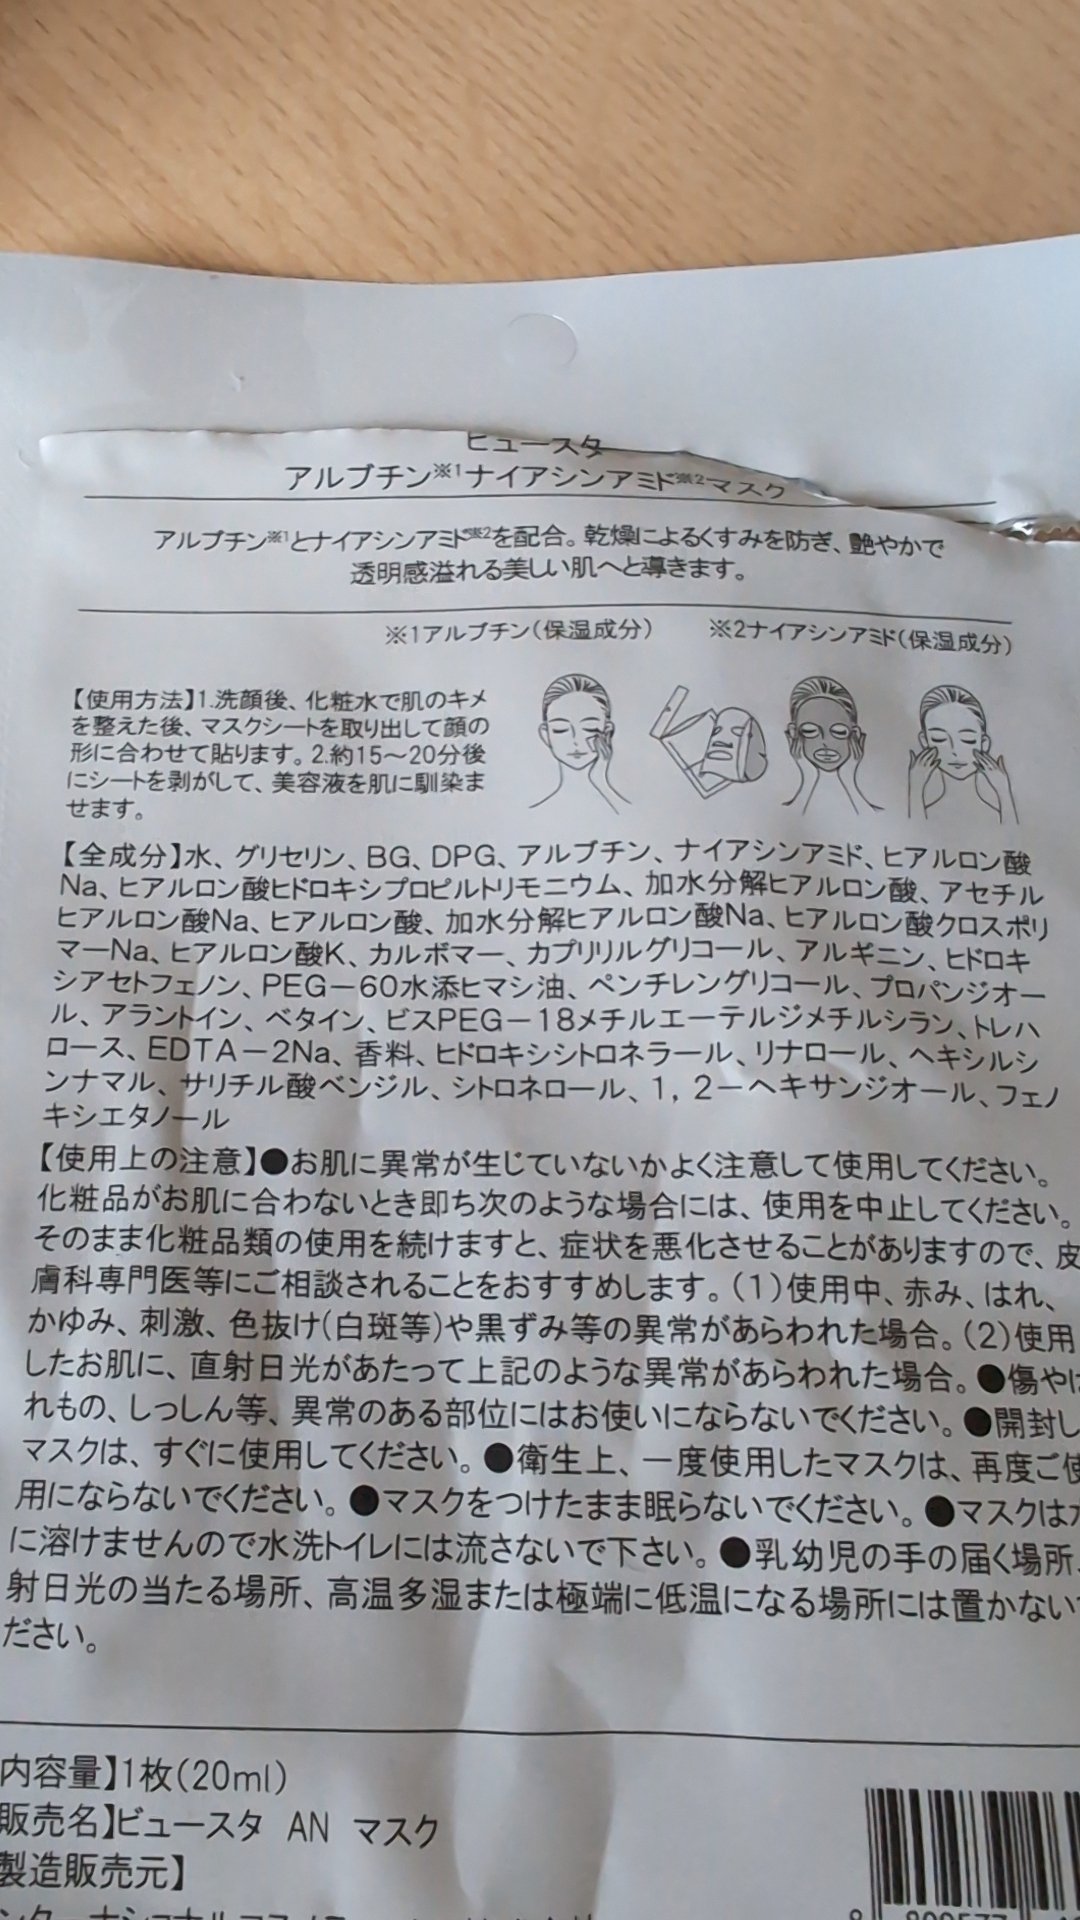 ビュースタ
アルブチン※1ナイアシンアミド※2マスク
アルブチン※1とナイアシンアミド※2を配合。乾燥によるくすみを防ぎ、艶やかで
透明感溢れる美しい肌へと導きます。
※1アルブチン(保湿成分) ※2ナイアシンアミド(保湿成分)
【使用方法】1.洗顔後、化粧水で肌のキメ
を整えた後、マスクシートを取り出して顔の
形に合わせて貼ります。2.約15〜20分後
にシートを剥がして、美容液を肌に馴染ま
せます。
【全成分】水、グリセリン、BG、DPG、アルブチン、ナイアシンアミド、ヒアルロン酸
Na、ヒアルロン酸ヒドロキシプロピルトリモニウム、加水分解ヒアルロン酸、アセチル
ヒアルロン酸Na、ヒアルロン酸、加水分解ヒアルロン酸Na、ヒアルロン酸クロスポリ
マーNa、ヒアルロン酸K、カルボマー、カプリリルグリコール、アルギニン、ヒドロキ
シアセトフェノン、PEG－60水添ヒマシ油、ペンチレングリコール、プロパンジオー
ル、アラントイン、ベタイン、ビスPEG－18メチルエーテルジメチルシラン、トレハ
ロース、EDTA－2Na、香料、ヒドロキシシトロネラール、リナロール、ヘキシルシ
ンナマル、サリチル酸ベンジル、シトロネロール、1，2－ヘキサンジオール、フェノ
キシエタノール
【使用上の注意】●お肌に異常が生じていないかよく注意して使用してください。
化粧品がお肌に合わないとき即ち次のような場合には、使用を中止してください。
そのまま化粧品類の使用を続けますと、症状を悪化させることがありますので、皮
膚科専門医等にご相談されることをおすすめします。(1)使用中、赤み、はれ、
かゆみ、刺激、色抜け(白斑等)や黒ずみ等の異常があらわれた場合。(2)使用
したお肌に、直射日光があたって上記のような異常があらわれた場合。●傷やは
れもの、しっしん等、異常のある部位にはお使いにならないでください。●開封し
マスクは、すぐに使用してください。●衛生上、一度使用したマスクは、再度ご使
用にならないでください。●マスクをつけたまま眠らないでください。●マスクは水
に溶けませんので水洗トイレには流さないで下さい。●乳幼児の手の届く場所、
射日光の当たる場所、高温多湿または極端に低温になる場所には置かない
ださい。
内容量】1枚(20ml)
販売名】ビュースタ AN マスク
製造販売元】